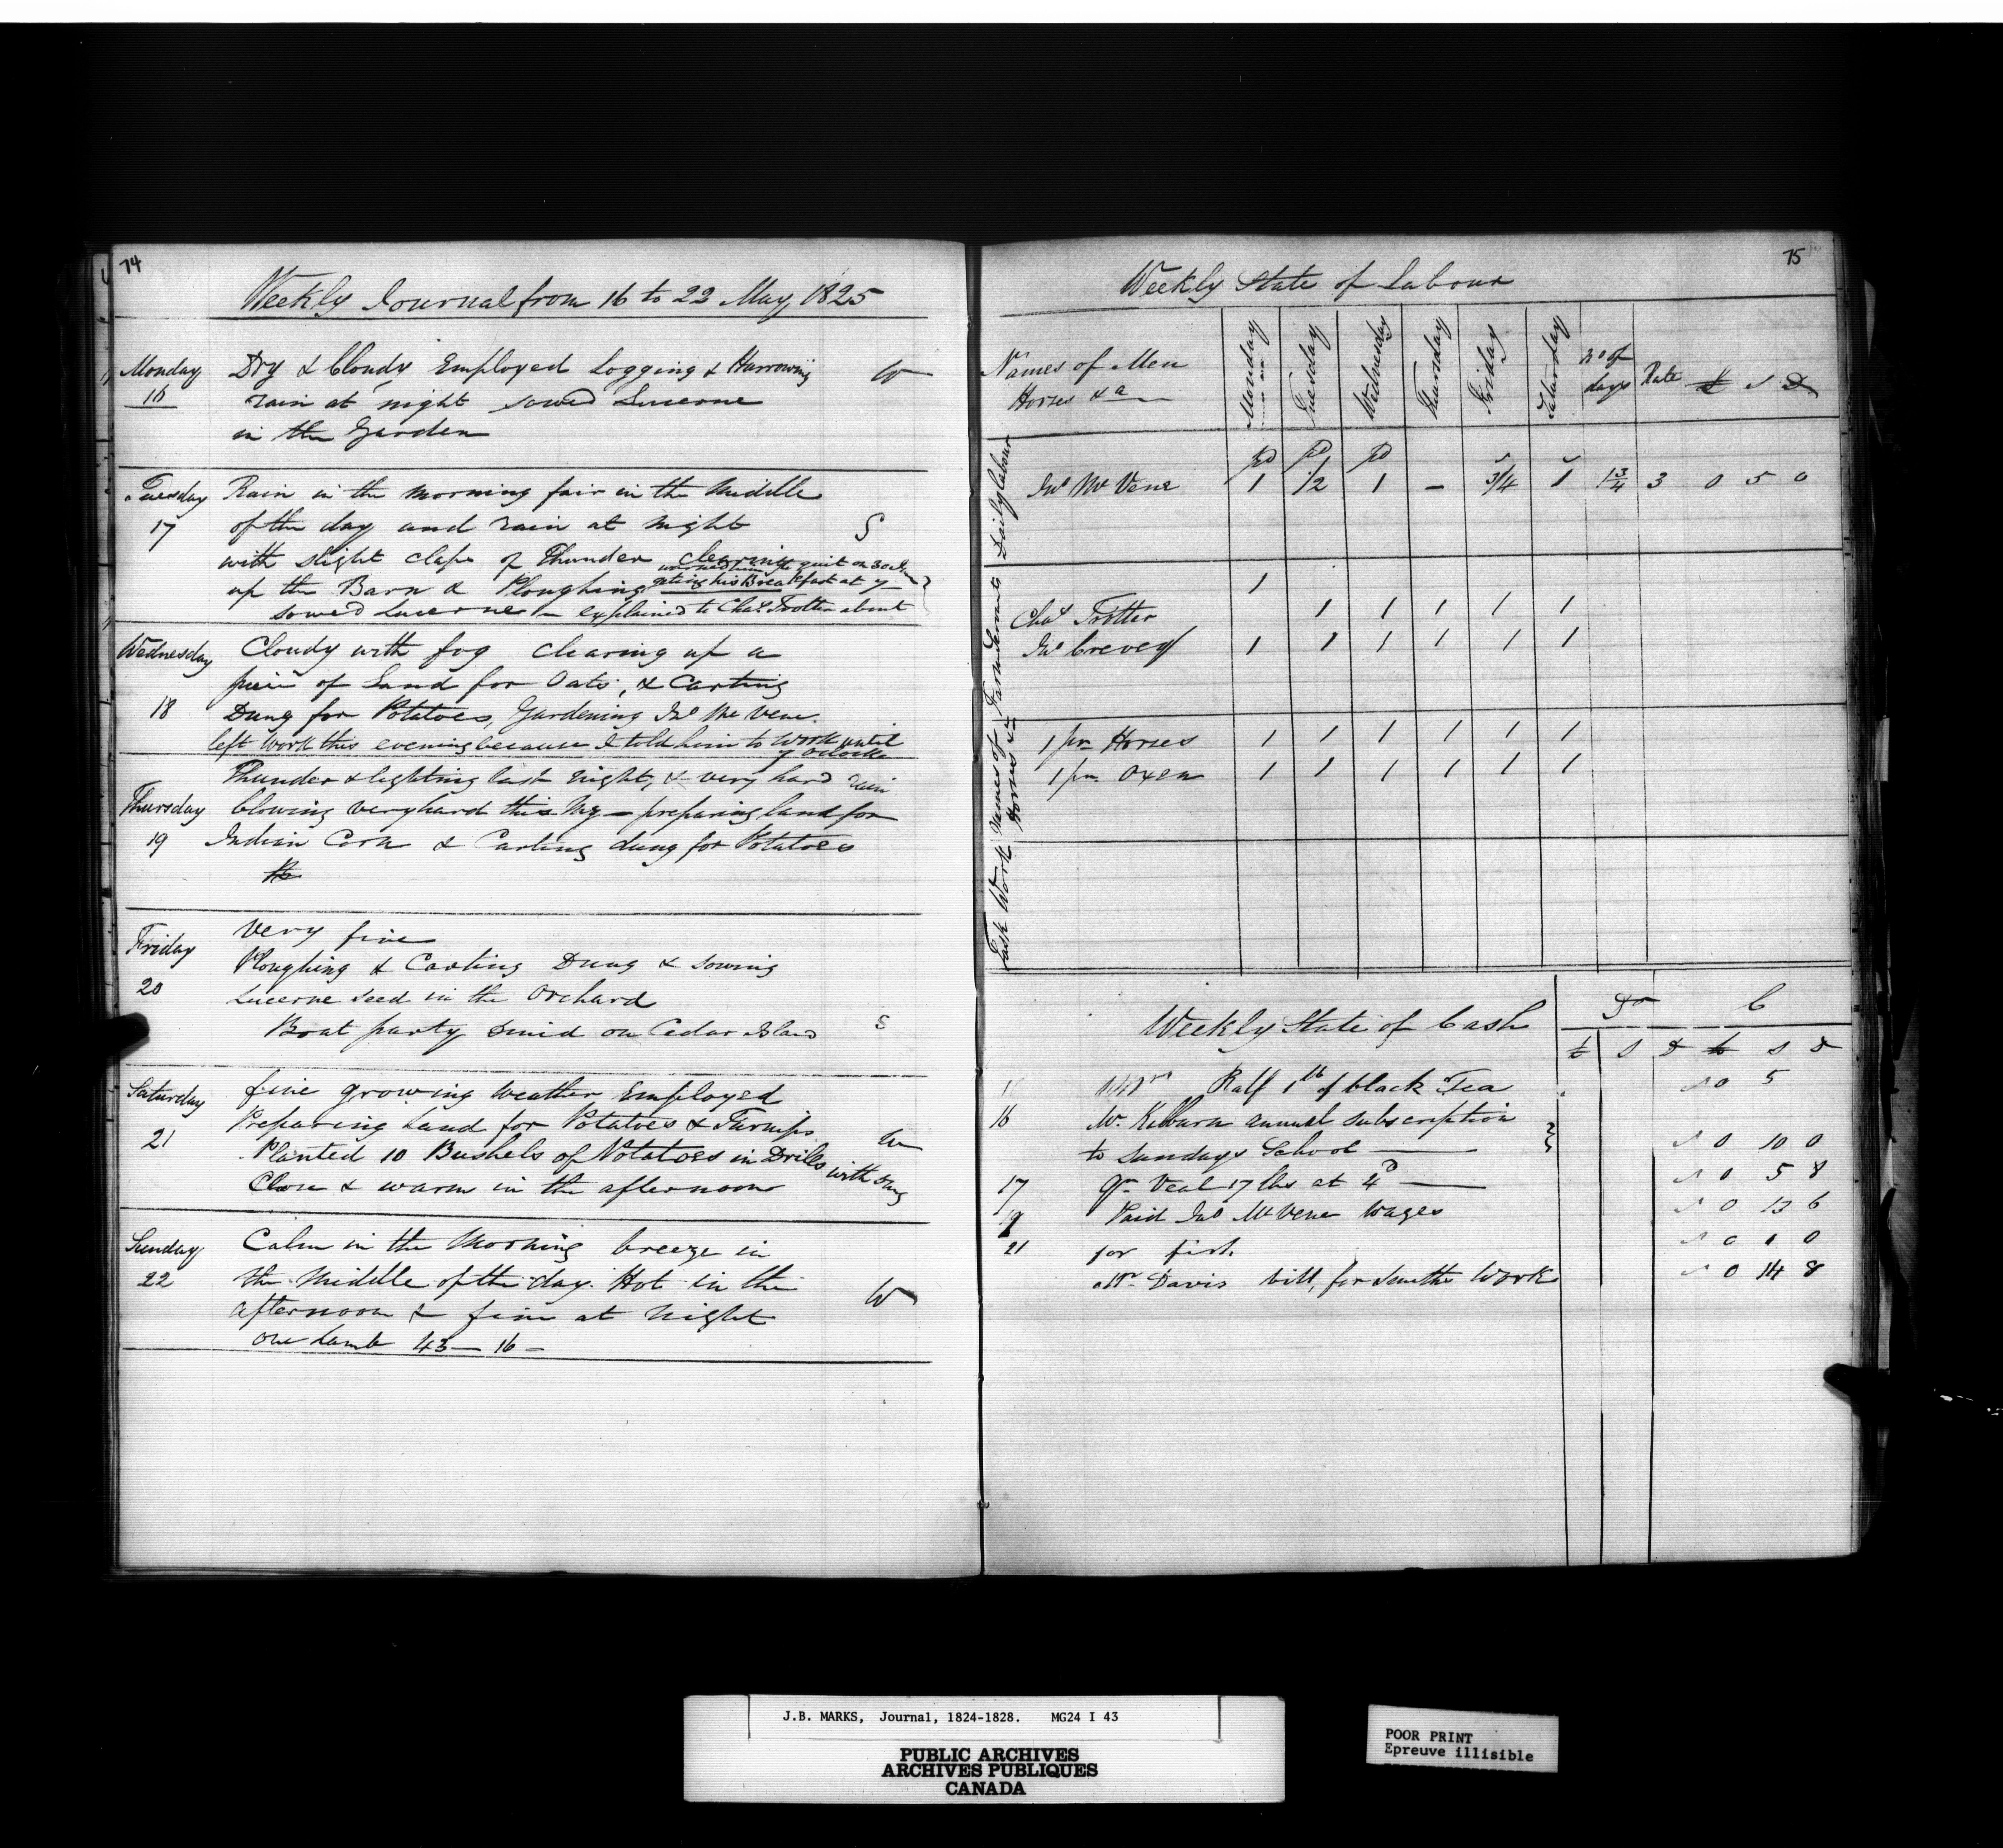 74
Weekly Journal from 16 to 22 May, 1825
Monday
16
Dry & Cloudy Employed Logging & Harrowing
rain at night sowed Lucerne
in the Garden
W
Tuesday
17
Rain in the morning fair in the Middle
of the day and rain at night
with slight claps of Thunder clearing
up the Barn & Ploughing
sowed Lucerne explained to Chas Trotter about
geting his Breakfast at 7
S
Wednesday
18
Cloudy with fog clearing up a
piece of Land for Oats, & Carting
Dung for Potatoes, Gardening Jno McVene.
left work this evening because I told him to work until
7 oclock
Thursday
19
Thunder & lighting last night, & very hard rain
blowing very hard this Mg - preparing land for
Indian Corn & Carting dung for Potatoes
Friday
20
Very fine
Ploughing & Carting Dung & sowing
Lucerne seed in the Orchard
Boat party dined on Cedar Island
S
Saturday
21
fine growing weather Employed
Preparing Land for Potatoes & Turnips
Planted 10 Bushels of Potatoes in Drills with dung
Close & warm in the afternoon
W
Sunday
22
Calm in the Morning breeze in
the Middle of the day. Hot in the
afternoon & fine at night
one Lamb 43 - 16 -
W
75
Weekly State of Labour
Names of Men
Horses &a
Monday Tuesday Wednesday Thursday Friday Saturday No of days Rate £ S D
Daily labour
pd pd pd
Jno McVene 1 1/2 1 - 3/4 1 1 3/4 3 0 5 0
Farm Servants
1
Chas Trotter 1 1 1 1 1
Jno Crevey 1 1 1 1 1 1
Names of Horses &c
1 pr Horses 1 1 1 1 1 1
1 pr Oxen 1 1 1 1 1 1
Task Work
Weekly State of Cash
Dr C
£ S D £ S D
Ralf 1 lb of black Tea 0 5
16 Mr Kilburn annual subscription
to Sundays School 0 10 0
17 Qr Veal 17 lbs at 4D 0 5 8
19 Paid Jno McVene wages 0 13 6
21 for fish 0 1 0
Mr Davis bill, for Smiths Work 0 14 8
J.B. MARKS, Journal, 1824-1828. MG24 I 43
PUBLIC ARCHIVES
ARCHIVES PUBLIQUES
CANADA
POOR PRINT
Epreuve illisible